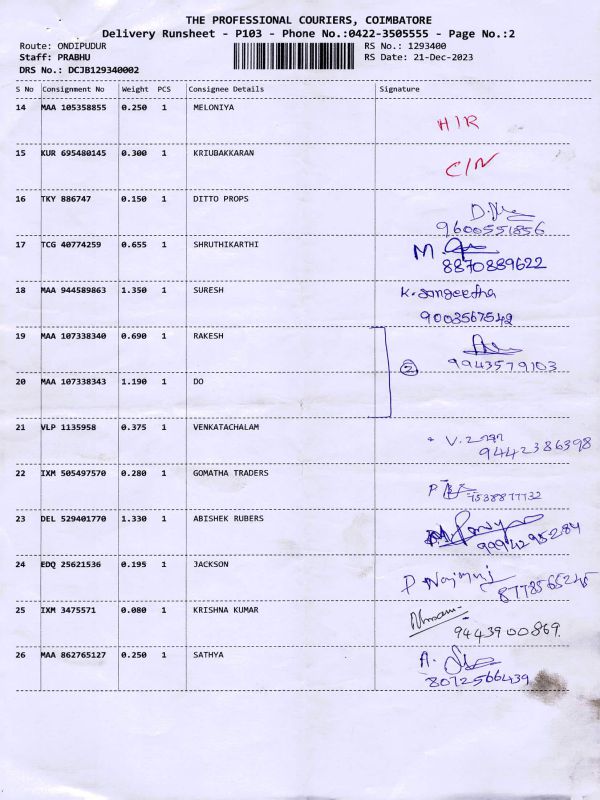 THE PROFESSIONAL COURIERS, COIMBATORE
Delivery Runsheet - P103 - Phone No.:0422-3505555 - Page No.:2
Route: ONDIPUDUR RS No.: 1293400
Staff: PRABHU RS Date: 21-Dec-2023
DRS No.: DCJB129340002
S No Consignment No Weight PCS Consignee Details Signature
14 MAA 105358855 0.250 1 MELONIYA H/R
15 KUR 695480145 0.300 1 KRIUBAKKARAN C/N
16 TKY 886747 0.150 1 DITTO PROPS
9600551856
17 TCG 40774259 0.655 1 SHRUTHIKARTHI M.
8870889622
18 MAA 944589863 1.350 1 SURESH K. Sangeetha
9003567542
19 MAA 107338340 0.690 1 RAKESH
2 9943579103
20 MAA 107338343 1.190 1 DO
21 VLP 1135958 0.375 1 VENKATACHALAM V.
9442386398
22 IXM 505497570 0.280 1 GOMATHA TRADERS P
9538877732
23 DEL 529401770 1.330 1 ABISHEK RUBERS
9994295284
24 EDQ 25621536 0.195 1 JACKSON P
8778565245
25 IXM 3475571 0.080 1 KRISHNA KUMAR
9443900869.
26 MAA 862765127 0.250 1 SATHYA A.
8072566439